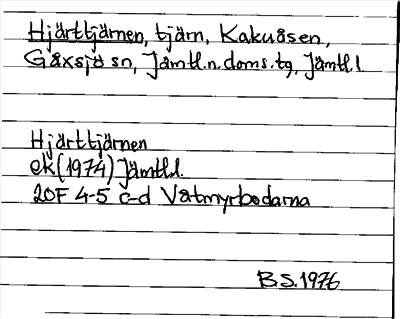 Hjärttjärnen, tjärn, Kakuåsen,
Gåxsjö sn, Jämtl.n.doms.tg, Jämtl.l.
Hjärttjärnen
ek(1974) Jämtl.l.
20F 4-5 c-d Våtmyrbodarna
B.S.1976